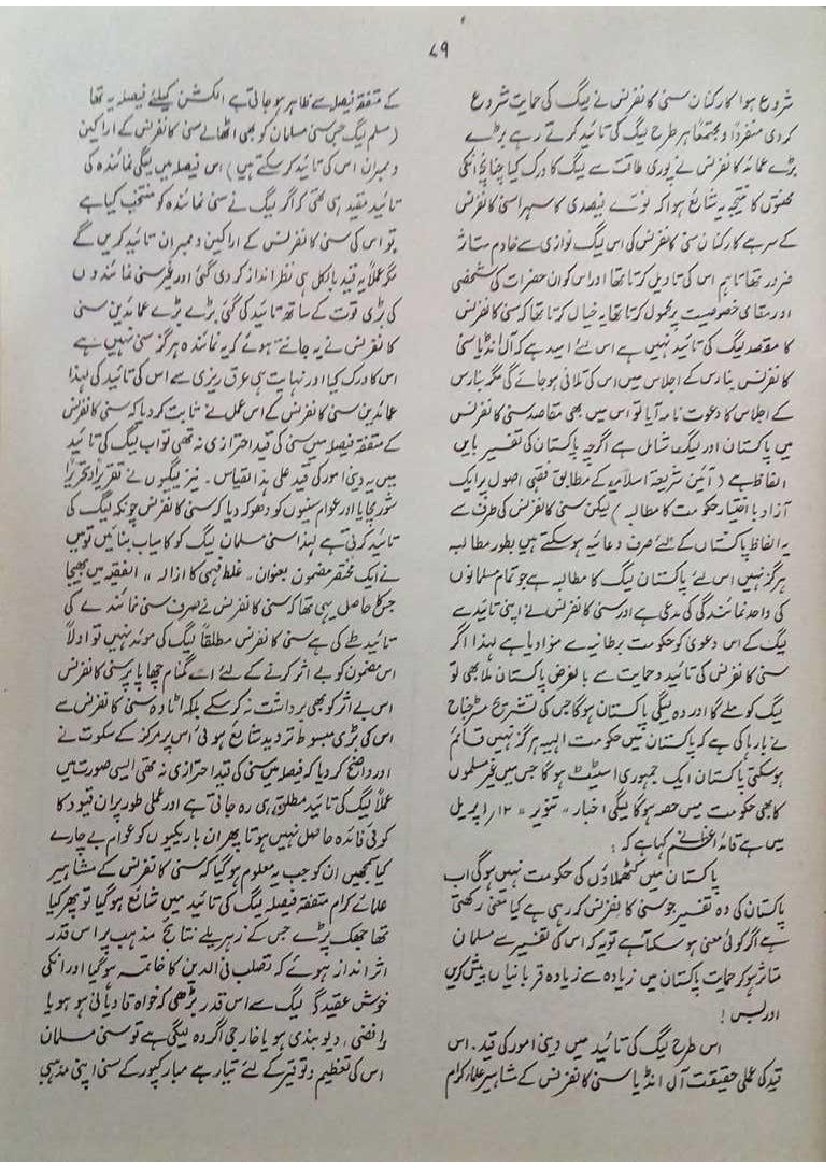 ۷۹
شروع ہوا کارکنان سنی کانفرنس نے لیگ کی حمایت شروع
کردی منفرداً ومجتمعاً ہر طرح لیگ کی تائید کرتے رہے بڑے
بڑے عمائد کانفرنس نے پوری طاقت سے لیگ کا ورک کیا چنانچہ انکی
محنتوں کا نتیجہ یہ شائع ہوا کہ نوے فیصدی کا سہرا سنی کانفرنس
کے سر ہے کارکنان سنی کانفرنس کی اس لیگ نوازی سے خادم متاثر
ضرور تھا تاہم اس کی تاویل کرتا تھا اور اس کو ان حضرات کی شخصی
اور مقامی خصوصیت پر محمول کرتا تھا یہ خیال کرتا تھا کہ سنی کانفرنس
کا مقصد لیگ کی تائید نہیں ہے اس لئے امید ہے کہ آل انڈیا سنی
کانفرنس بنارس کے اجلاس میں اس کی تلافی ہو جائے گی مگر بنارس
کے اجلاس کا دعوت نامہ آیا تو اس میں بھی مقاصد سنی کانفرنس
میں پاکستان اور لیگ شامل ہے اگرچہ پاکستان کی تفسیر بایں
الفاظ ہے (آئین شریعۃ اسلامیہ کے مطابق فقہی اصول پر ایک
آزاد با اختیار حکومت کا مطالبہ) لیکن سنی کانفرنس کی طرف سے
یہ الفاظ پاکستان کے لئے صرف دعائیہ ہو سکتے ہیں بطور مطالبہ
ہرگز نہیں اس لئے پاکستان لیگ کا مطالبہ ہے جو تمام مسلمانوں
کی واحد نمائندگی کی مدعی ہے اور سنی کانفرنس نے اپنی تائید سے
لیگ کے اس دعویٰ کو حکومت برطانیہ سے منوا دیا ہے لہذا اگر
سنی کانفرنس کی تائید و حمایت سے بالفرض پاکستان ملا بھی تو
لیگ کو ملے گا اور وہ لیگی پاکستان ہوگا جس کی تشریح مسٹر جناح
نے بارہا کی ہے کہ پاکستان میں حکومت الٰہیہ ہرگز نہیں قائم
ہو سکتی پاکستان ایک جمہوری اسٹیٹ ہوگا جس میں غیر مسلموں
کا بھی حکومت میں حصہ ہوگا لیگی اخبار "تنویر" ۱۲/ اپریل
میں ہے قائد اعظم نے کہا ہے کہ :
پاکستان میں کٹھ ملاؤں کی حکومت نہیں ہوگی اب
پاکستان کی وہ تفسیر جو سنی کانفرنس کر رہی ہے کیا معنی رکھتی
ہے اگر کوئی معنی ہو سکتا ہے تو یہ کہ اس کی تفسیر سے مسلمان
متاثر ہو کر حمایت پاکستان میں زیادہ سے زیادہ قربانیاں پیش کریں
اور بس !
اس طرح لیگ کی تائید میں دینی امور کی قید۔ اس
قید کی عملی حقیقت آل انڈیا سنی کانفرنس کے مشاہیر علماء کرام
کے متفقہ فیصلہ سے ظاہر ہو جاتی ہے الکشن کیلئے فیصلہ یہ تھا
(مسلم لیگ جس سنی مسلمان کو بھی اٹھائے سنی کانفرنس کے اراکین
و ممبران اس کی تائید کر سکتے ہیں) اس فیصلہ میں لیگی نمائندہ کی
تائید مقید ہی تھی کہ اگر لیگ نے سنی نمائندہ کو منتخب کیا ہے
تو اس کی سنی کانفرنس کے اراکین و ممبران تائید کریں گے
مگر عملاً یہ قید بالکل ہی نظر انداز کردی گئی اور غیر سنی نمائندوں
کی بڑی قوت کے ساتھ تائید کی گئی بڑے بڑے عمائدین سنی
کانفرنس نے یہ جانتے ہوئے کہ یہ نمائندہ ہرگز سنی نہیں ہے
اس کا ورک کیا اور نہایت ہی عرق ریزی سے اس کی تائید کی لہذا
عمائدین سنی کانفرنس کے اس عمل نے ثابت کردیا کہ سنی کانفرنس
کے متفقہ فیصلہ میں سنی کی قید احترازی نہ تھی تو اب لیگ کی تائید
میں یہ دینی امور کی قید علی ہذا القیاس۔ نیز لیگیوں نے تقریراً وتحریراً
شور مچایا اور عوام سنیوں کو دھوکہ دیا کہ سنی کانفرنس چونکہ لیگ کی
تائید کرتی ہے لہذا سنی مسلمان لیگ کو کامیاب بنائیں تو میں
نے ایک مختصر مضمون بعنوان "غلط فہمی کا ازالہ" الفقیہ میں بھیجا
جس کا حاصل یہی تھا کہ سنی کانفرنس نے صرف سنی نمائندے کی
تائید طے کی ہے سنی کانفرنس مطلقاً لیگ کی موئد نہیں تو اولاً
اس مضمون کو بے اثر کرنے کے لئے اسے گمنام چھاپا پھر سنی کانفرنس
اس بے اثر کو بھی برداشت نہ کر سکے بلکہ اٹاوہ سنی کانفرنس سے
اس کی بڑی مبسوط تردید شائع ہوئی اس پر مرکز کے سکوت نے
اور واضح کردیا کہ فیصلہ میں سنی کی قید احترازی نہ تھی ایسی صورت میں
عملاً لیگ کی تائید مطلق ہی رہ جاتی ہے اور عملی طور پر ان قیود کا
کوئی فائدہ حاصل نہیں ہوتا پھر ان باریکیوں کو عوام بے چارے
کیا سمجھیں ان کو جب یہ معلوم ہو گیا کہ سنی کانفرنس کے مشاہیر
علمائے کرام متفقہ فیصلہ لیگ کی تائید میں شائع ہو گیا تو پھر کیا
تھا جھک پڑے جس کے زہریلے نتائج مذہب پر اس قدر
اثر انداز ہوئے کہ تصلب فی الدین کا خاتمہ ہو گیا اور انکی
خوش عقیدگی لیگ سے اس قدر بڑھی کہ خواہ قادیانی ہو یا
رافضی، دیوبندی ہو یا خارجی اگر وہ لیگی ہے تو سنی مسلمان
اس کی تعظیم و توقیر کے لئے تیار ہے مبارکپور کے سنی اپنی مذہبی